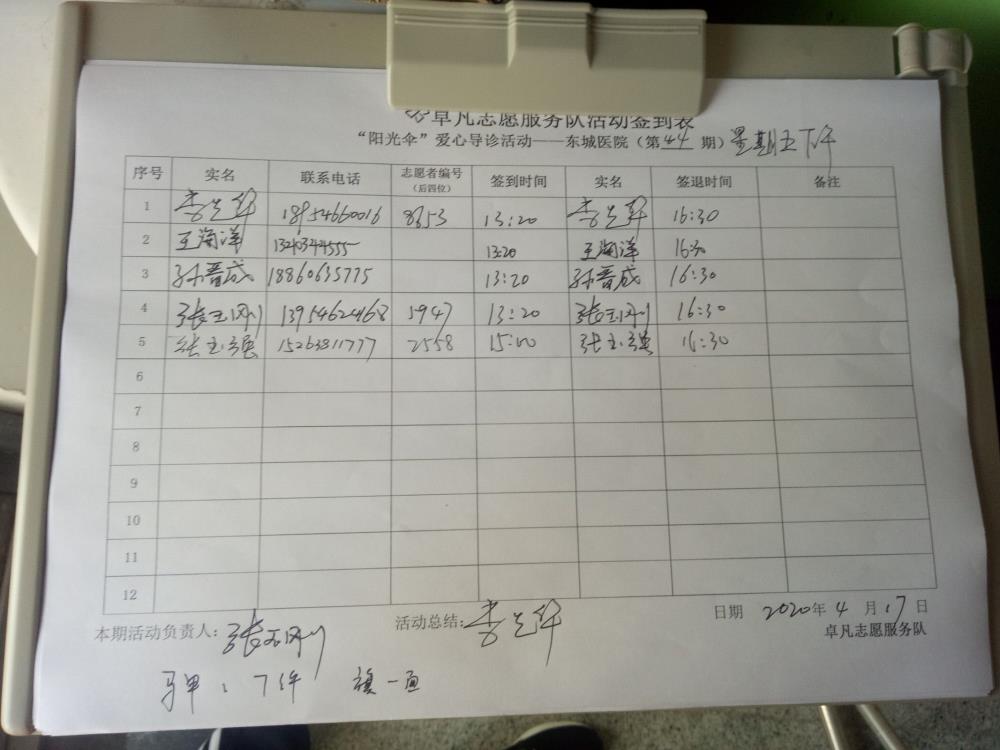 卓凡志愿服务队活动签到表
“阳光伞”爱心导诊活动——东城医院（第44期）星期五下午
序号 实名 联系电话 志愿者编号（后四位） 签到时间 实名 签退时间 备注
1 李光辉 18954660016 8353 13:20 李光辉 16:30
2 王海洋 13:20 王海洋 16:30
3 孙晋成 18860635775 13:20 孙晋成 16:30
4 张玉刚 13954624168 5947 13:20 张玉刚 16:30
5 张玉强 15263811777 2558 15:00 张玉强 16:30
6
7
8
9
10
11
12
本期活动负责人：张玉刚 活动总结： 日期 2020年4月17日
卓凡志愿服务队
马甲：7件 旗一面